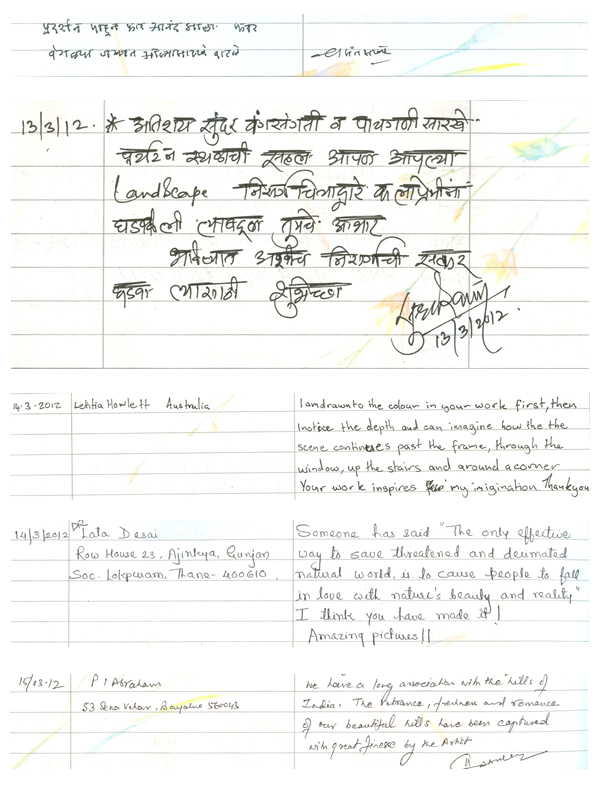 प्रदर्शन पाहून फार आनंद झाला.
वेगळ्या जगात आल्यासारखे वाटले
13/3/12. * अतिशय सुंदर रंगसंगती व पाचगणी सारखे
पर्यटन स्थळाची सहल आपण आपल्या
Landscape निसर्ग चित्राद्वारे कलाप्रेमींना
घडवली त्याबद्दल तुमचे आभार
भविष्यात अशीच निसर्गाची सफर
घडवा त्यासाठी शुभेच्छा
13/3/2012.
14.3.2012 Letitia Howlett Australia
I am drawn to the colour in your work first, then
I notice the depth and can imagine how the the
scene continues past the frame, through the
window, up the stairs and around a corner
Your work inspires my imigination. Thankyou
14/3/2012 Dr Lata Desai
Row House 23, Ajinkya, Gunjan
Soc. Lokpuram, Thane - 400610.
Someone has said "The only effective
way to save threatened and decimated
natural world, is to cause people to fall
in love with nature's beauty and reality"
I think you have made it!
Amazing pictures!!
15/03-12 P I Abraham
53 Sena Vihar, 560043
We have a long association with the hills of
India. The vibrance, freshness and romance
of our beautiful hills have been captured
with great finesse by the Artist